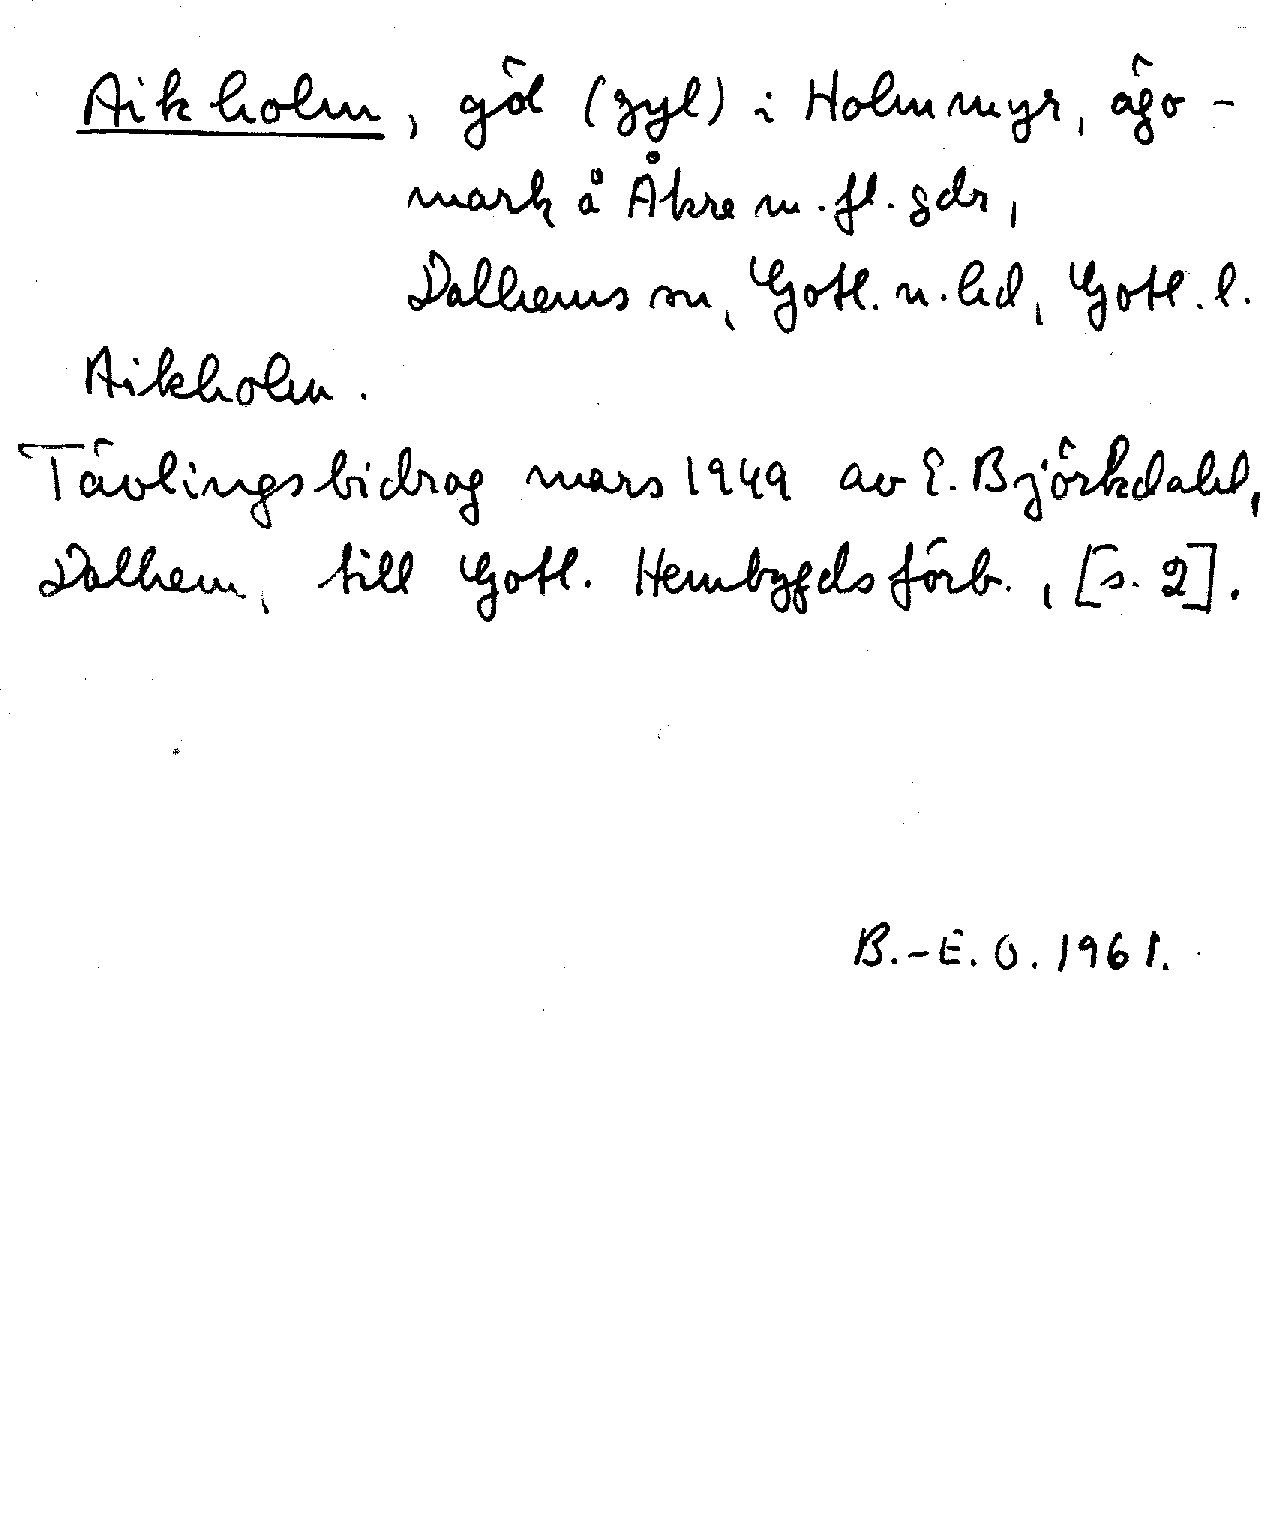 Aikholm, göl (gyl) i Holmmyr, ägo-
mark å Åkre m.fl. gdr,
Dalhems sn, Gotl. n. hd, Gotl. l.
Aikholm.
Tävlingsbidrag mars 1949 av E. Björkdahl,
Dalhem, till Gotl. Hembygdsförb., [s. 2].
B.-E. O. 1961.